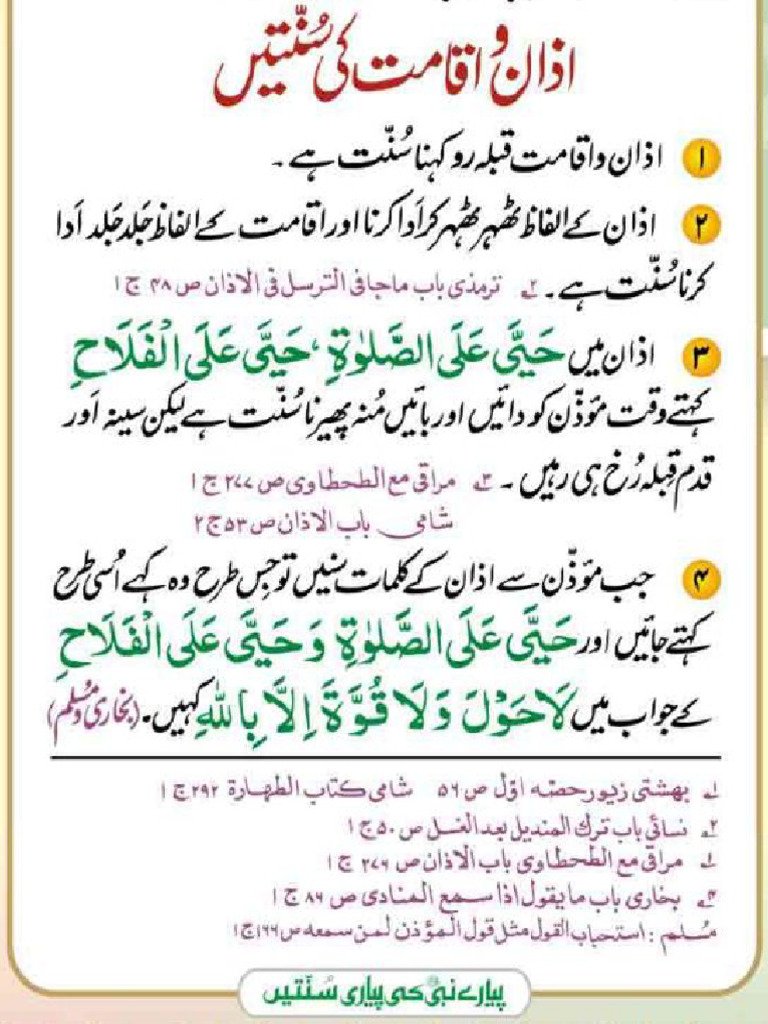 اذان و اقامت کی سُنّتیں
۱ اذان و اقامت قبلہ رو کہنا سُنّت ہے۔
۲ اذان کے الفاظ ٹھہر ٹھہر کر اَدا کرنا اور اقامت کے الفاظ جَلد جَلد اَدا
کرنا سُنّت ہے۔ ۲ ترمذی باب ماجافی الترسل فی الاذان ص ۴۸ ج ۱
۳ اذان میں حَیَّ عَلَی الصَّلٰوۃِ ، حَیَّ عَلَی الْفَلَاحِ
کہتے وقت مؤذّن کو دائیں اور بائیں مُنہ پھیرنا سُنّت ہے لیکن سینہ اَور
قدم قِبلہ رُخ ہی رہیں۔ ۳ مراقی مع الطحطاوی ص ۲۷۷ ج ۱
شامی باب الاذان ص ۵۳ ج ۲
۴ جب مؤذّن سے اذان کے کلمات سنیں تو جِس طرح وہ کہے اُسی طرح
کہتے جائیں اور حَیَّ عَلَی الصَّلٰوۃِ وَ حَیَّ عَلَی الْفَلَاحِ
کے جواب میں لَاحَوْلَ وَلَا قُوَّۃَ اِلَّا بِاللّٰہِ کہیں۔ (بخاری و مُسلم)
۱ بھشتی زیور حصّہ اوّل ص ۵۶ شامی کتاب الطھارۃ ۲۹۲ ج ۱
۲ نسائی باب ترک المندیل بعد الغسل ص ۵۰ ج ۱
۱ مراقی مع الطحطاوی باب الاذان ص ۲۷۶ ج ۱
۴ بخاری باب مایقول اذا سمع المنادی ص ۸۶ ج ۱
مُسلم : استحباب القول مثل قول المؤذن لمن سمعہ ص ۱۶۶ ج ۱
پیارے نبیؐ کی پیاری سُنّتیں